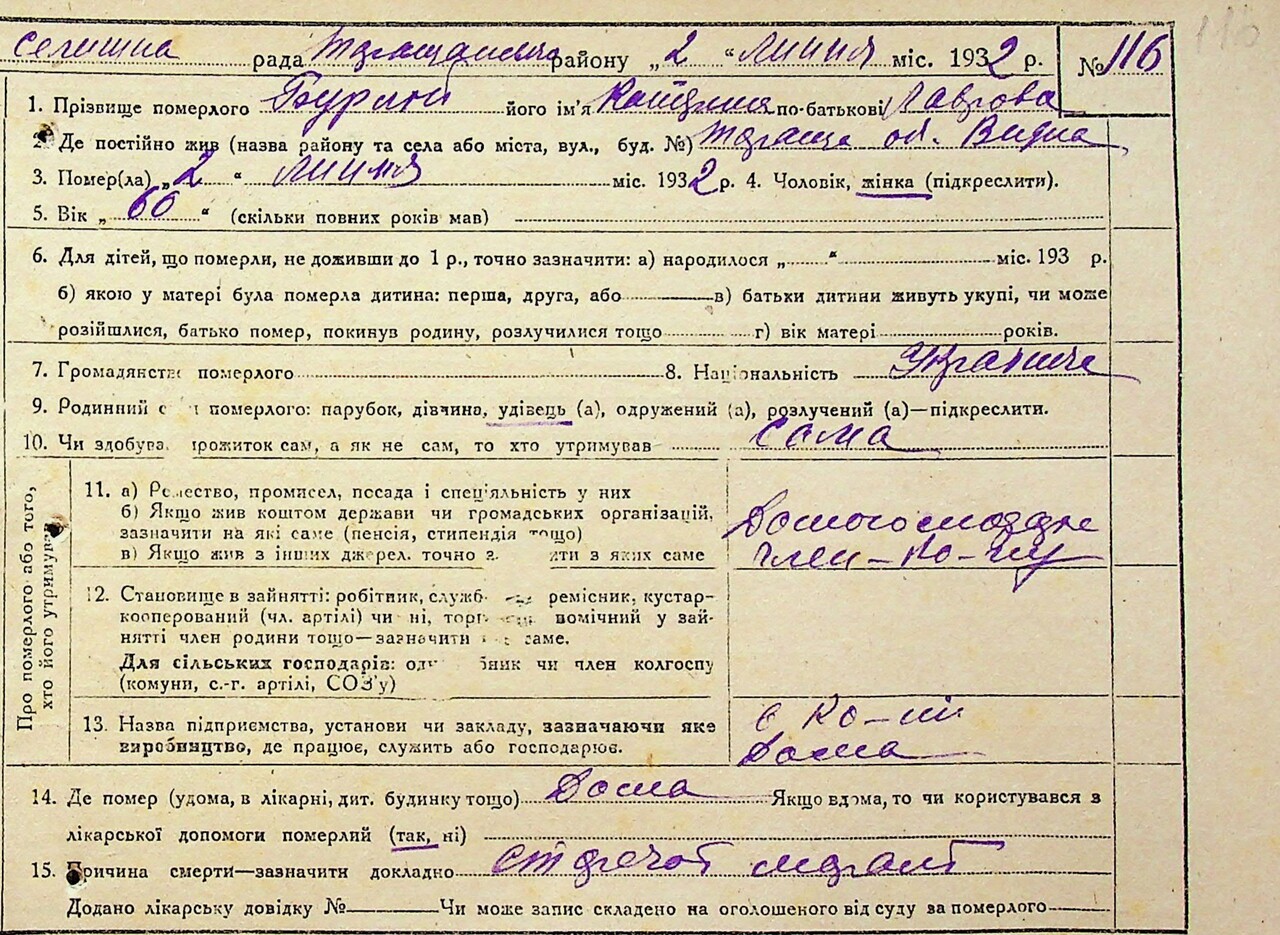 116
селишна рада Таращанська району „2“ липня міс. 1932 р. № 116
1. Прізвище померлого його ім'я Катерина по-батькові Лаврова
2. Де постійно жив (назва району та села або міста, вул., буд. №) Тараща
3. Помер(ла) „2“ липня міс. 1932 р. 4. Чоловік, жінка (підкреслити).
5. Вік „60“ (скільки повних років мав)
6. Для дітей, що померли, не доживши до 1 р., точно зазначити: а) народилося „ “ міс. 193 р.
б) якою у матері була померла дитина: перша, друга, або в) батьки дитини живуть укупі, чи може
розійшлися, батько помер, покинув родину, розлучилися тощо г) вік матері років.
7. Громадянств померлого 8. Національність
9. Родинний с померлого: парубок, дівчина, удівець (а), одружений (а), розлучений (а)—підкреслити.
10. Чи здобува прожиток сам, а як не сам, то хто утримував сама
Про померлого або того,
хто його утримував
11. а) Ремество, промисел, посада і спеціяльність у них
б) Якщо жив коштом держави чи громадських організацій,
зазначити на які саме (пенсія, стипендія тощо)
в) Якщо жив з інших джерел, точно з ити з яких саме
член-ко-пу
12. Становище в зайнятті: робітник, служб ремісник, кустар-
кооперований (чл. артілі) чи ні, торг помічний у зай-
нятті член родини тощо—зазначити саме.
Для сільських господарів: одн бник чи член колгоспу
(комуни, с.-г. артілі, СОЗ'у)
13. Назва підприємства, установи чи закладу, зазначаючи яке
виробництво, де працює, служить або господарює.
в ко-пі
Дома
14. Де помер (удома, в лікарні, дит. будинку тощо) Дома Якщо вдома, то чи користувався з
лікарської допомоги померлий (так, ні)
15. Причина смерти—зазначити докладно
Додано лікарську довідку № Чи може запис складено на оголошеного від суду за померлого